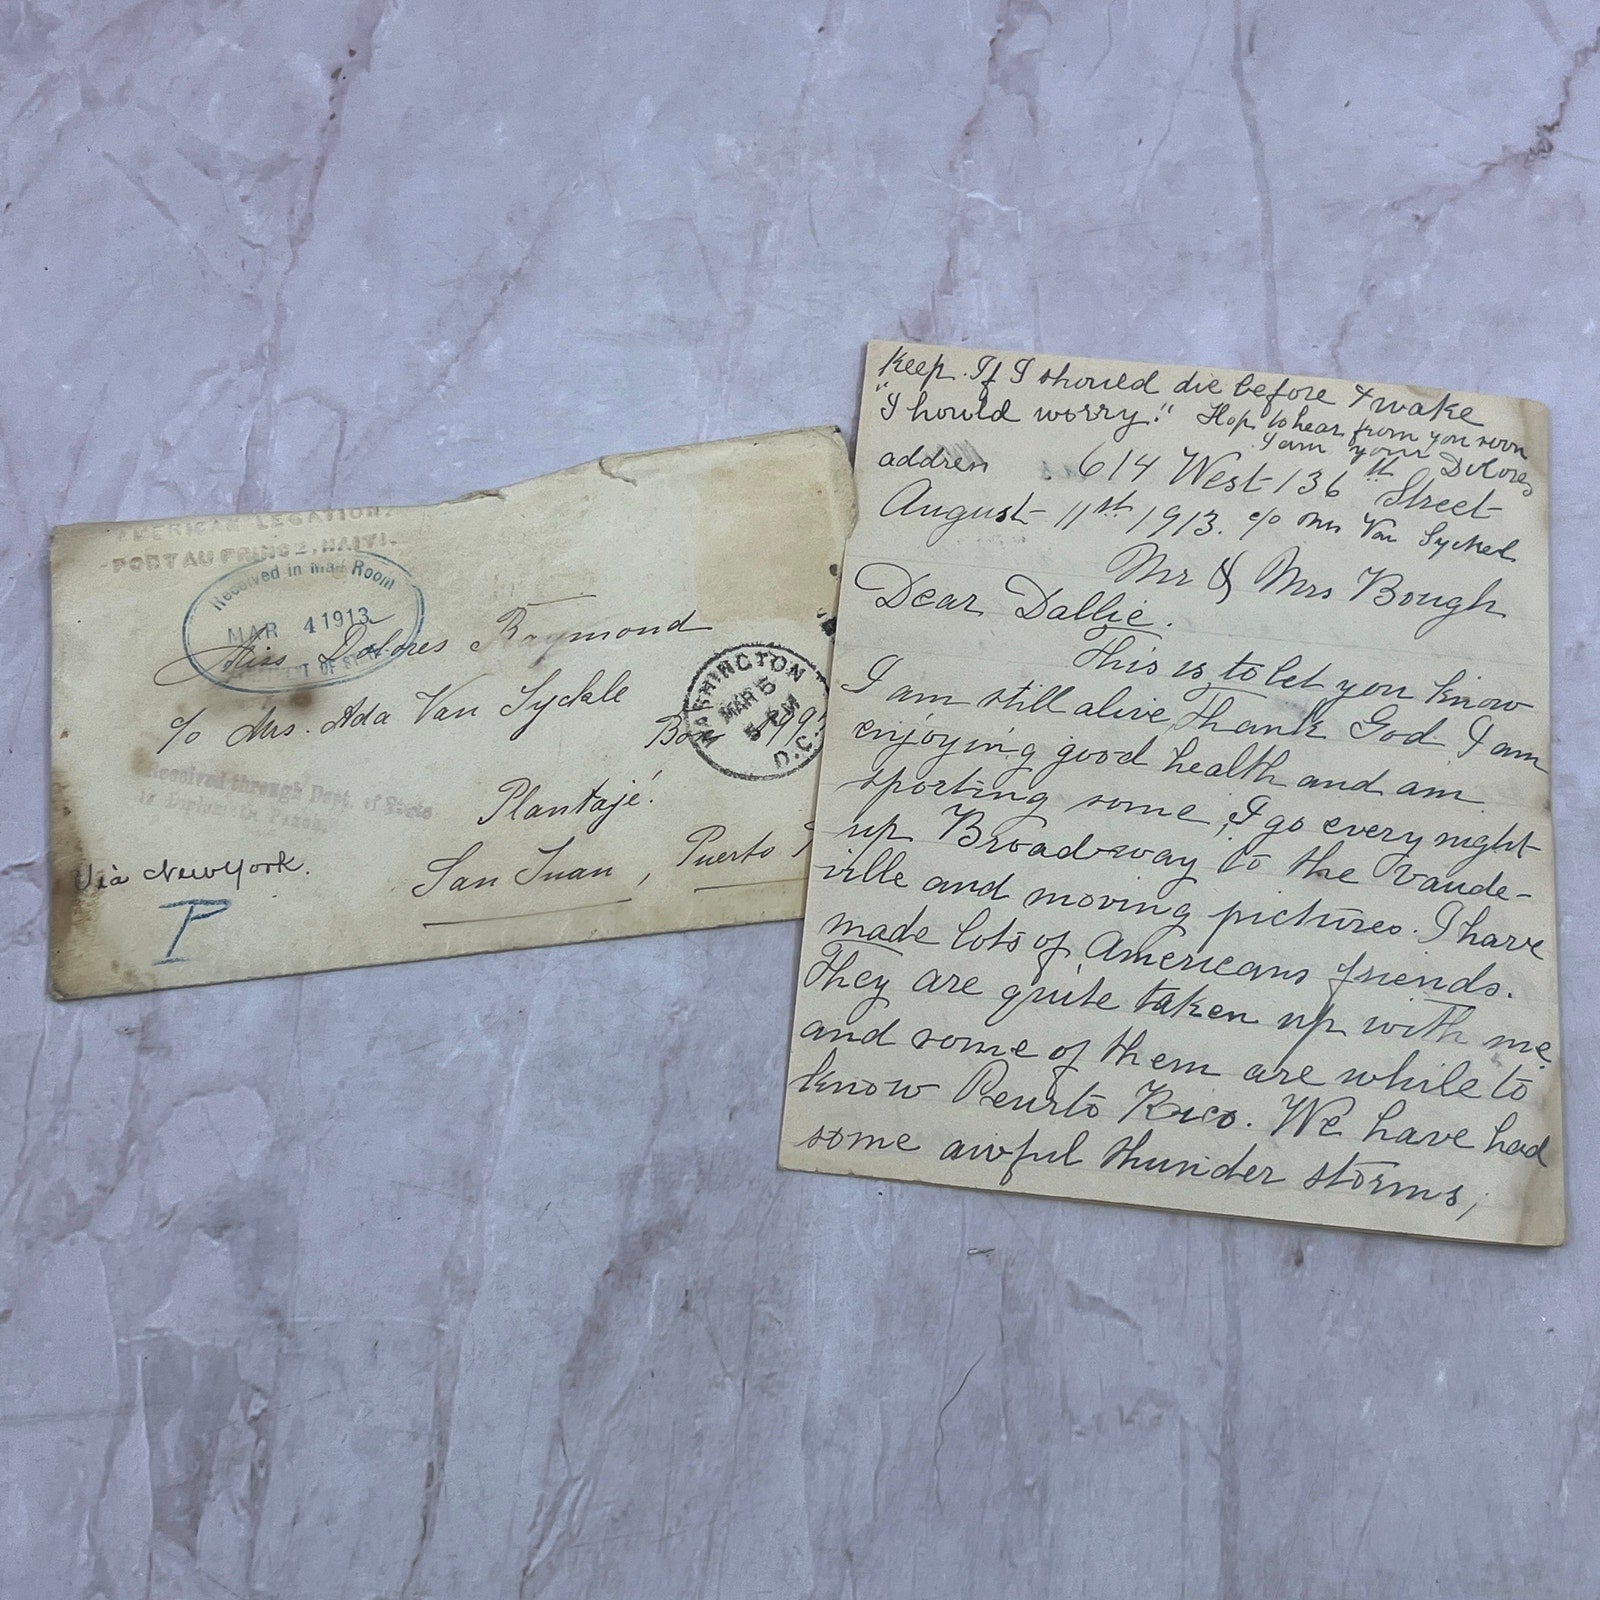 AMERICAN LEGATION,
PORT AU PRINCE, HAITI.
Received in Mail Room
MAR 4 1913
Miss Dolores Raymond
c/o Mrs. Ada Van Syckle
Box 199
WASHINGTON
MAR 5
PM
D.C.
Plantaje.
Received through Dept. of State
San Juan, Puerto
Via New York.
T
Keep. If I should die before I wake
"I hould worry." Hop to hear from you soon
I am yours Dolores
addres 614 West 136th Street
August 11st 1913. c/o Mrs Van Syckel
Mr & Mrs Bough
Dear Dallie.
This is to let you know
I am still alive, Thank God I am
enjoying good health and am
sporting some, I go every night
up Broadway to the vaude-
ville and moving pictures. I have
made lots of Americans friends.
They are quite taken up with me
and some of them are while to
know Peurto Rico. We have had
some awful thunder storms,